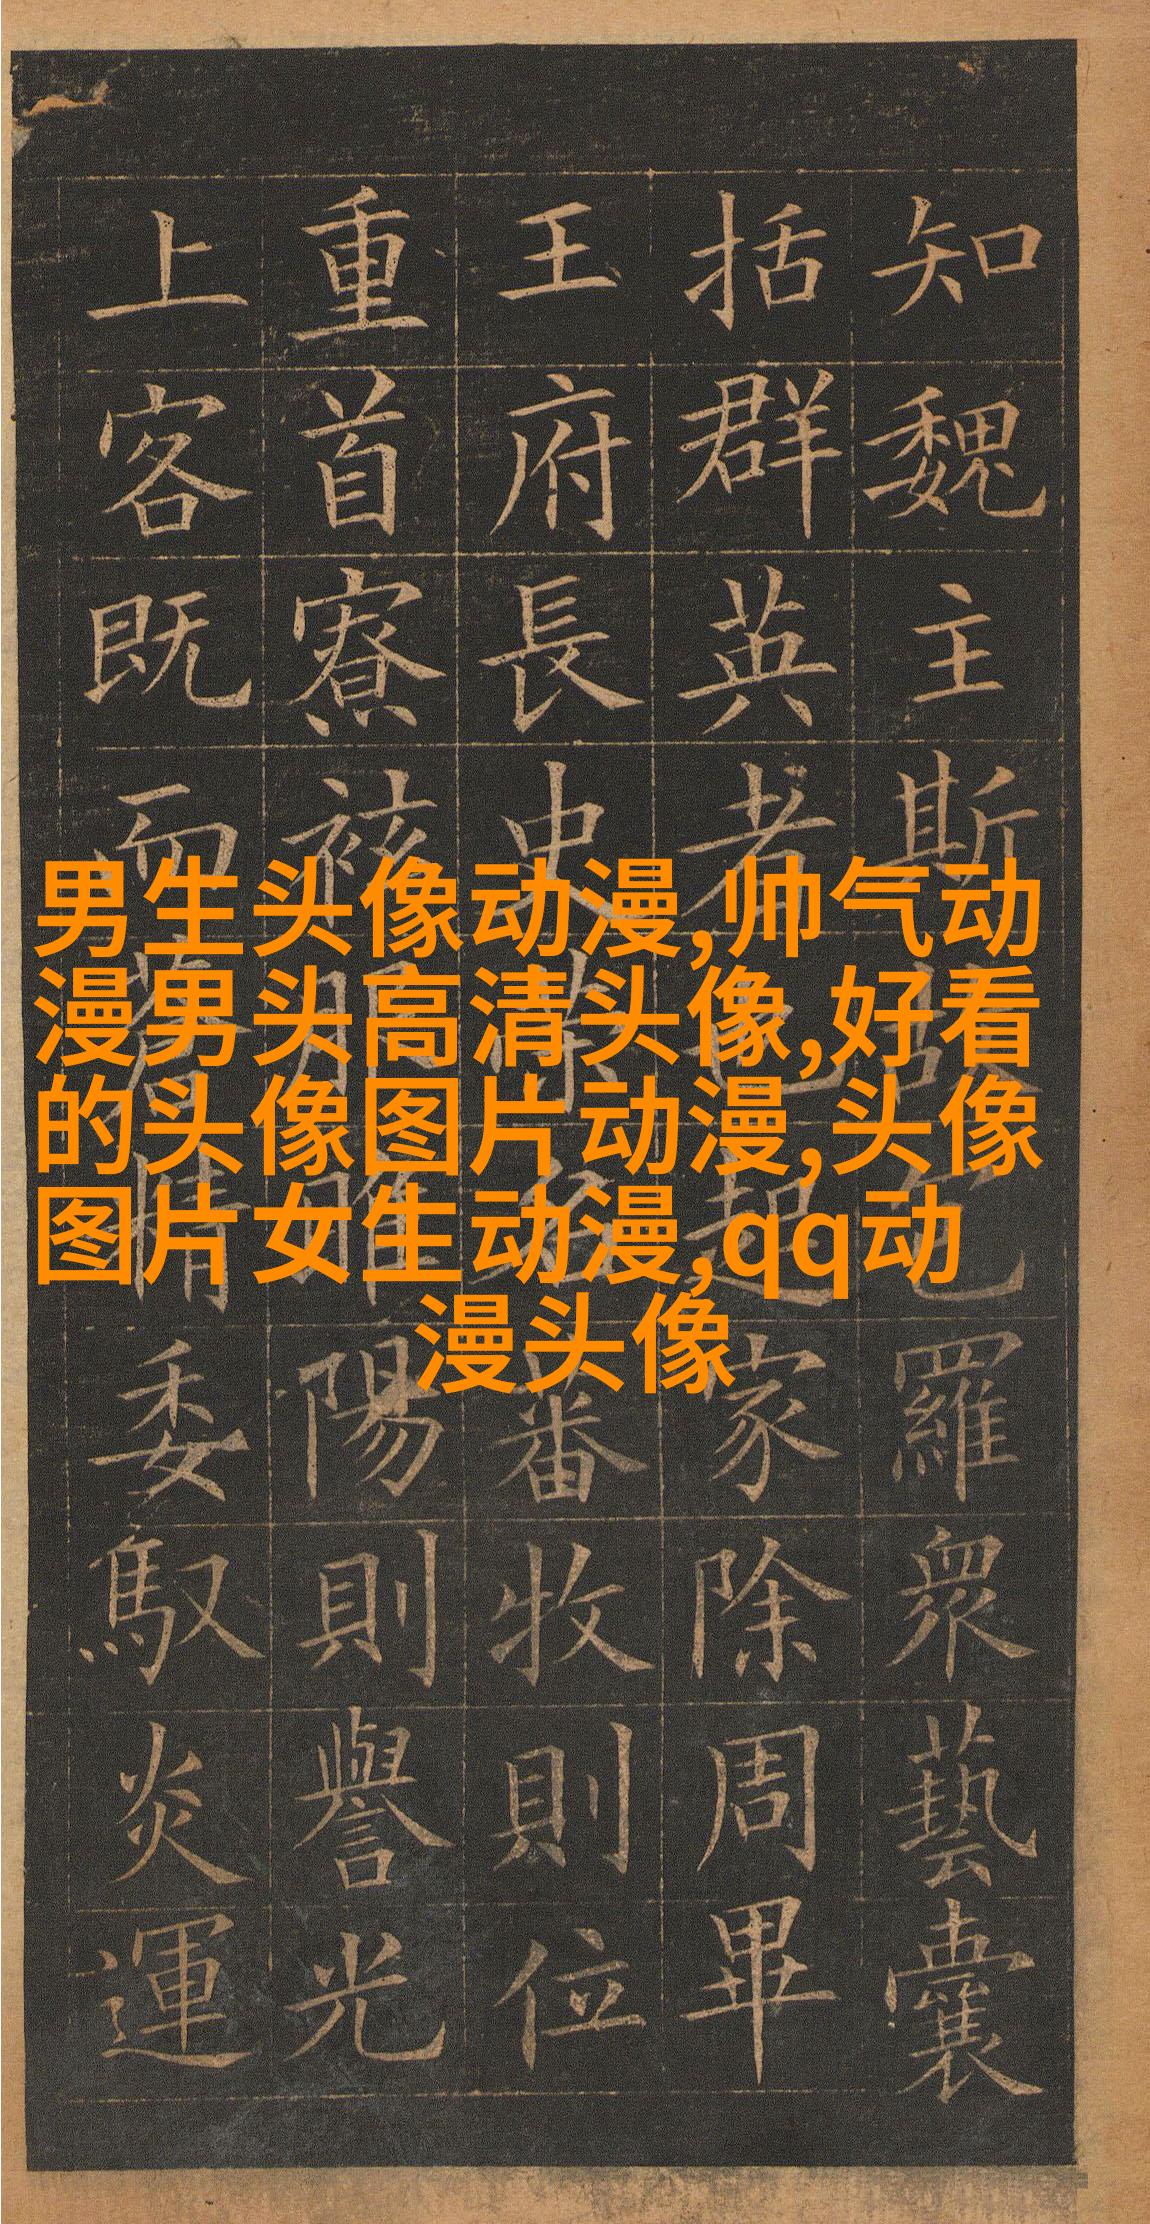 知魏主斯包羅衆藝囊
括群英者也起家除周畢
王府長史蕃牧則位
重首寮袨服睢陽則譽光
上客既而蒼精委馭炎運
男生头像动漫,帅气动
漫男头高清头像,好看
的头像图片动漫,头像
图片女生动漫,qq动
漫头像